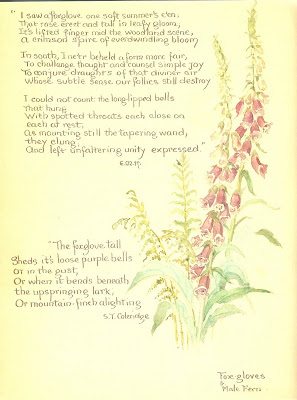 "I saw a foxglove one soft summer's e'en,
That rose erect and tall in leafy bloom,
It's lifted finger mid the woodland scene,
A crimson spire of everdwindling bloom;
In sooth, I ne'er beheld a form more fair,
To challenge thought and counsel simple joy
To conjure draughts of that divíner air
Whose subtle sense our follies still destroy
I could not count the long-lipped bells
that hung
With spotted throats each close on
each at rest;
As mounting still the tapering wand,
they clung
And left unfaltering unity expressed."
"The fox-glove tall
Sheds it's loose purple bells
or in the gust,
Or when it bends beneath
the upspringing lark,
Or mountain-finch alighting
S.T. Coleridge
Fox-gloves
& Male Fern